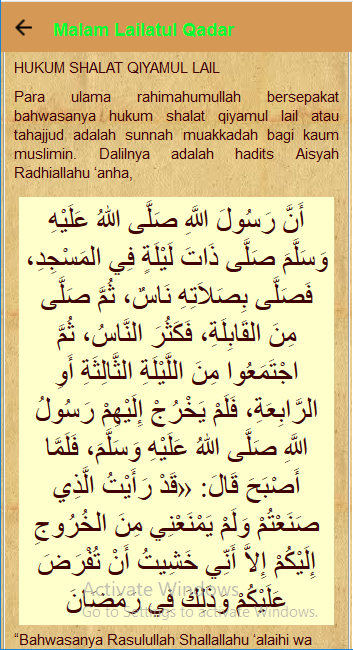 Malam Lailatul Qadar
HUKUM SHALAT QIYAMUL LAIL
Para ulama rahimahumullah bersepakat
bahwasanya hukum shalat qiyamul lail atau
tahajjud adalah sunnah muakkadah bagi kaum
muslimin. Dalilnya adalah hadits Aisyah
Radhiallahu ‘anha,
أَنَّ رَسُولَ اللَّهِ صَلَّى اللهُ عَلَيْهِ
وَسَلَّمَ صَلَّى ذَاتَ لَيْلَةٍ فِي المَسْجِدِ،
فَصَلَّى بِصَلاَتِهِ نَاسٌ، ثُمَّ صَلَّى
مِنَ القَابِلَةِ، فَكَثُرَ النَّاسُ، ثُمَّ
اجْتَمَعُوا مِنَ اللَّيْلَةِ الثَّالِثَةِ أَوِ
الرَّابِعَةِ، فَلَمْ يَخْرُجْ إِلَيْهِمْ رَسُولُ
اللَّهِ صَلَّى اللهُ عَلَيْهِ وَسَلَّمَ، فَلَمَّا
أَصْبَحَ قَالَ: «قَدْ رَأَيْتُ الَّذِي
صَنَعْتُمْ وَلَمْ يَمْنَعْنِي مِنَ الخُرُوجِ
إِلَيْكُمْ إِلاَّ أَنِّي خَشِيتُ أَنْ تُفْرَضَ
عَلَيْكُمْ وَذَلِكَ فِي رَمَضَانَ
Activate Windows
Go to Settings to activate Windows.
“Bahwasanya Rasulullah Shallallahu ‘alaihi wa